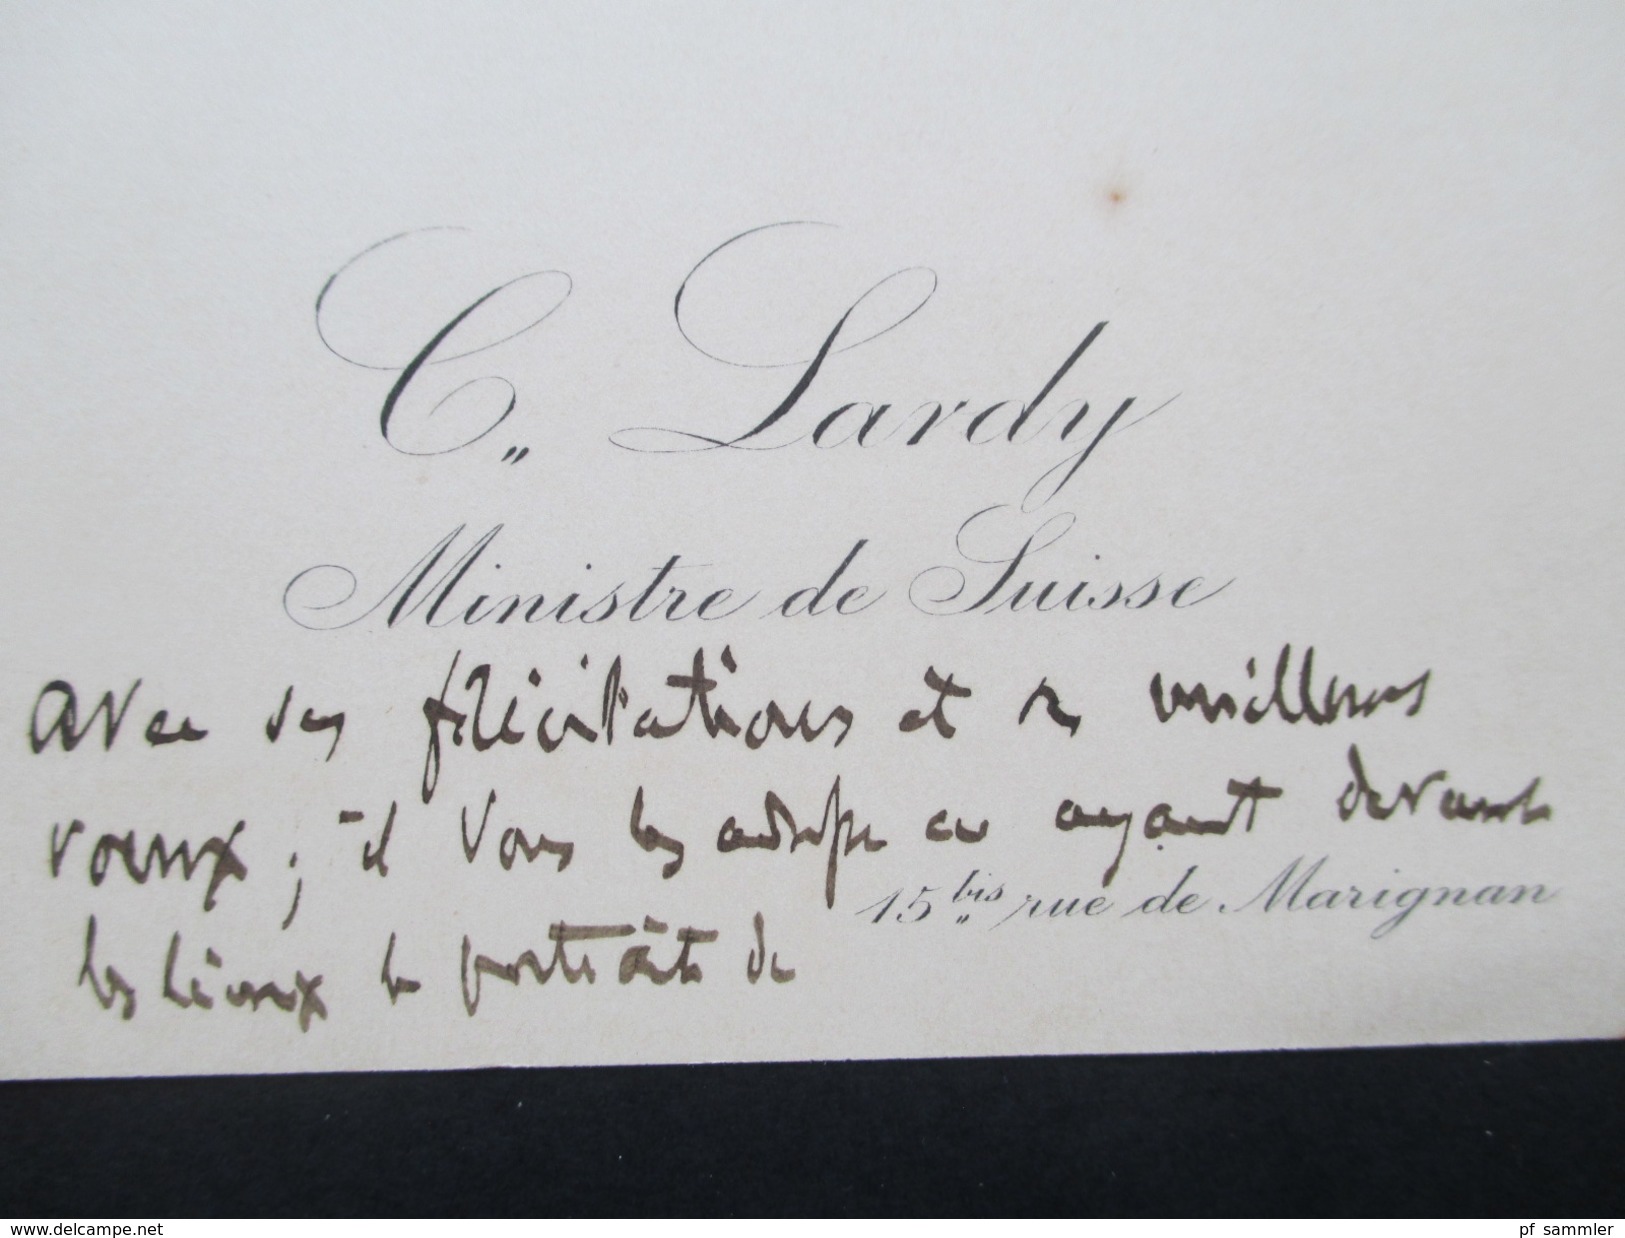 C. Lardy
Ministre de Suisse
avec ses félicitations et ses meilleurs
voeux ; il vous les adresse en ayant devant
15 bis rue de Marignan
les yeux le portrait de
www.delcampe.net
pf_sammler